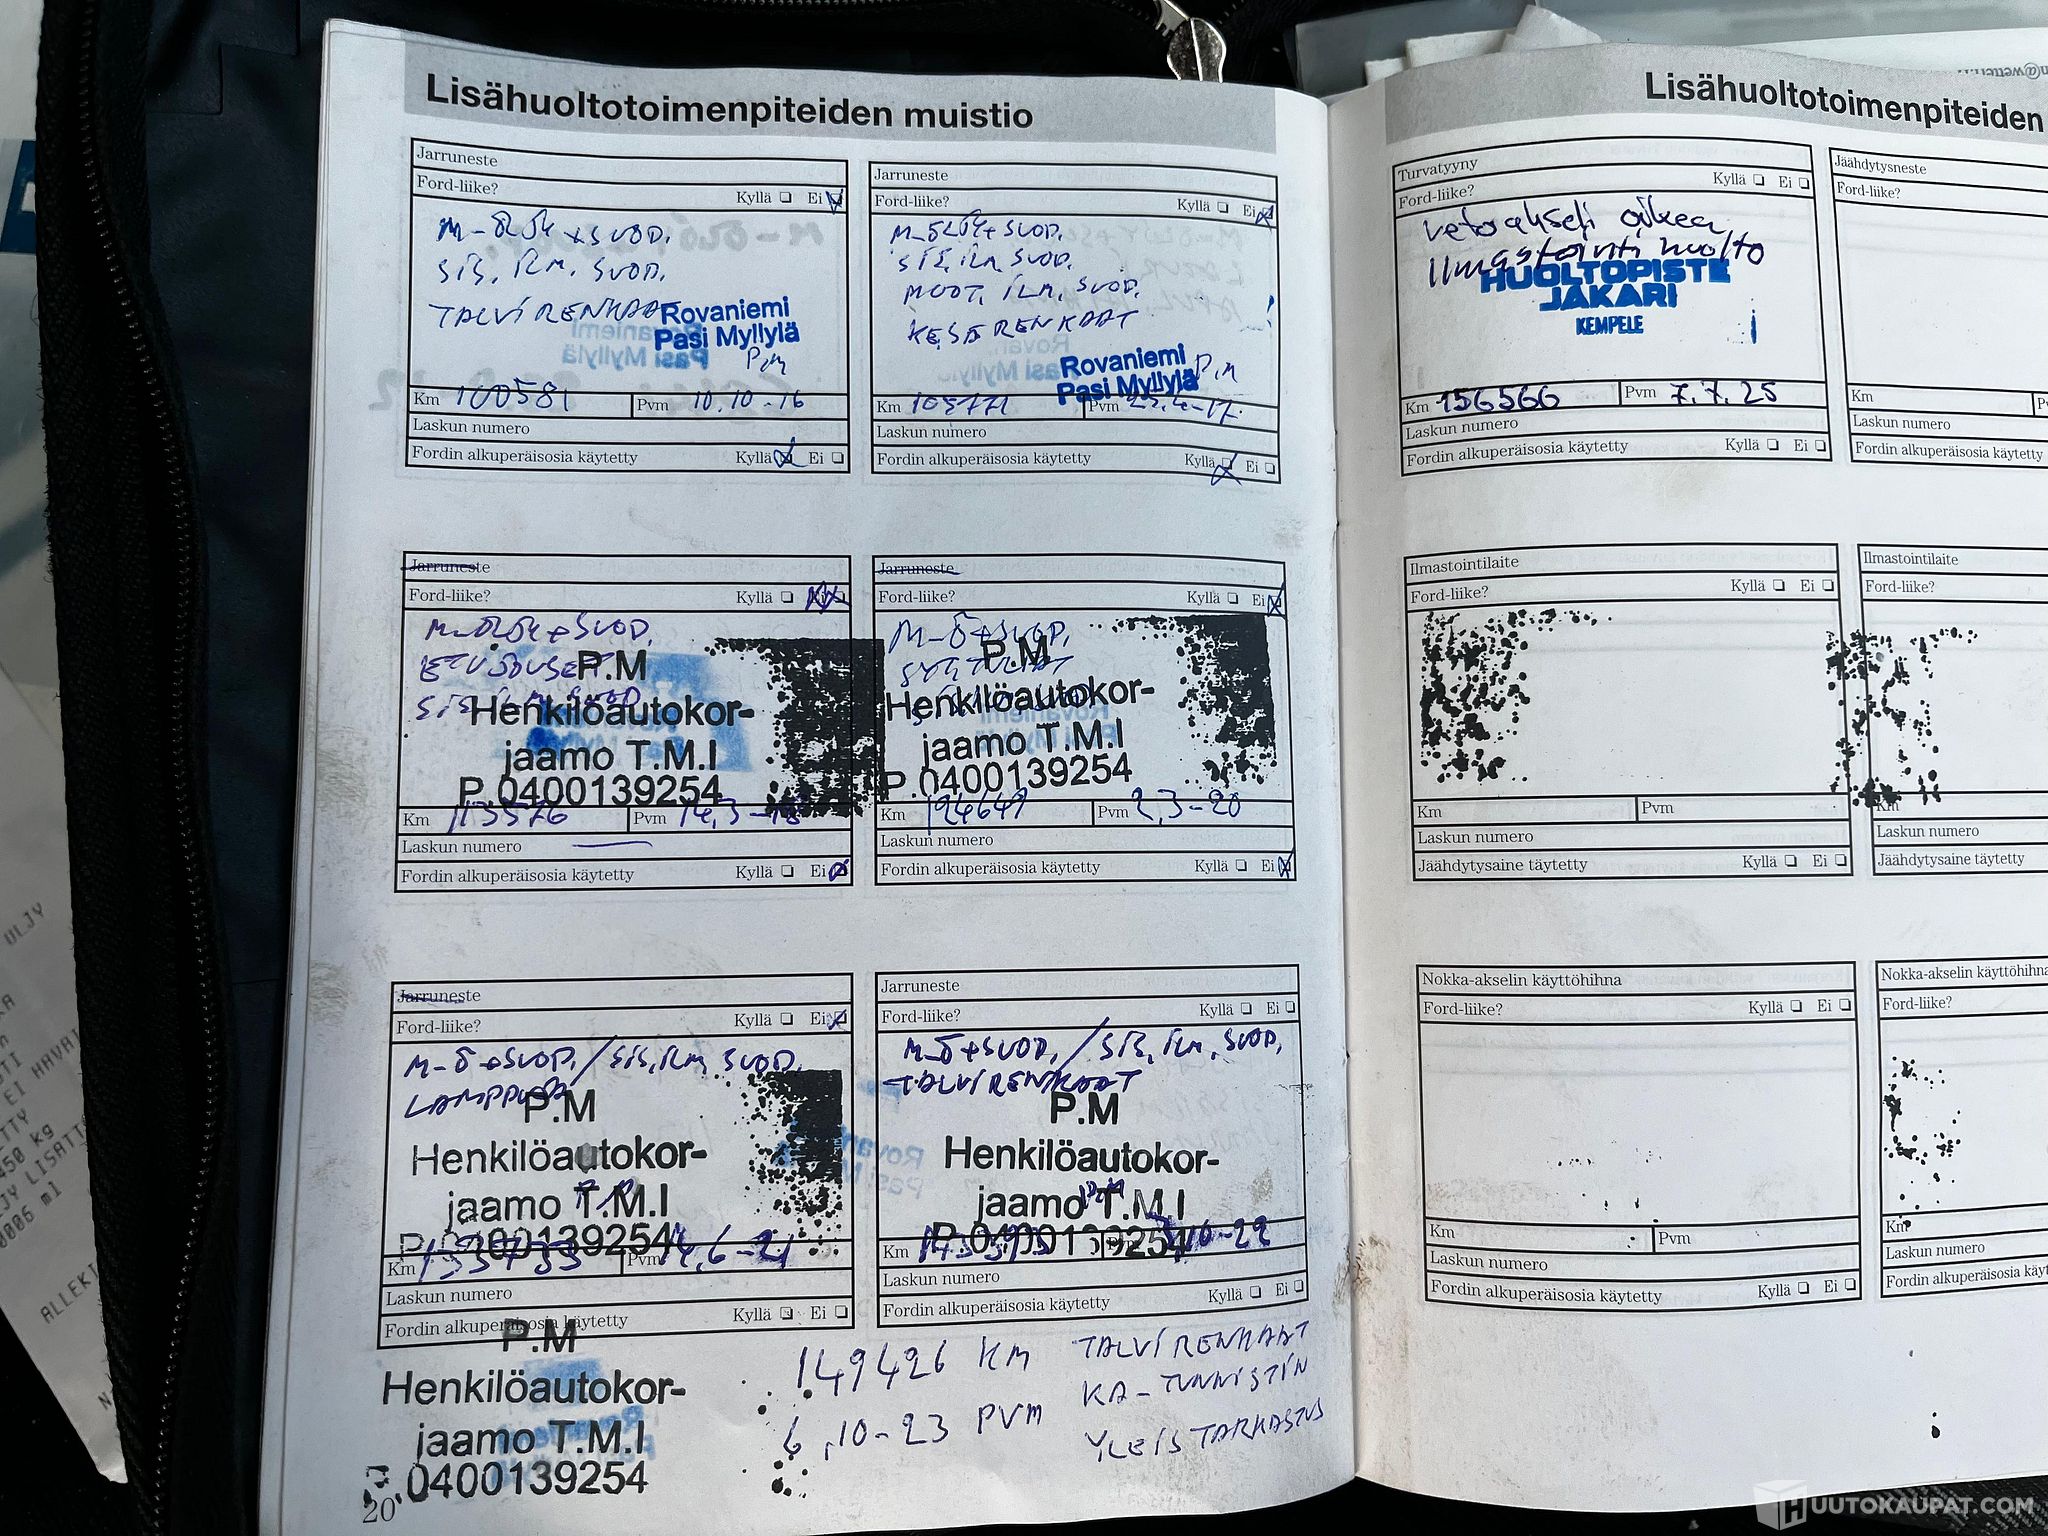 Lisähuoltotoimenpiteiden muistio
Jarruneste
Ford-liike? Kyllä Ei
M-ÖLJY + SUOD.
SIS. ILM. SUOD.
TALVIRENKAAT
Rovaniemi
Pasi Myllylä
P.M
Km 100581 Pvm 10.10-16
Laskun numero
Fordin alkuperäisosia käytetty Kyllä Ei
Jarruneste
Ford-liike? Kyllä Ei
M-ÖLJY + SUOD.
SIS. ILM. SUOD.
MOOT. ILM. SUOD.
KESÄRENKAAT
Rovaniemi
Pasi Myllylä
P.M
Km Pvm
Laskun numero
Fordin alkuperäisosia käytetty Kyllä Ei
Jarruneste
Ford-liike? Kyllä Ei
M-ÖLJY + SUOD.
SIS. ILM. SUOD.
P.M
Henkilöautokor-
jaamo T.M.I
P.0400139254
Km 113576 Pvm
Laskun numero
Fordin alkuperäisosia käytetty Kyllä Ei
Jarruneste
Ford-liike? Kyllä Ei
M-Ö + SUOD.
P.M
Henkilöautokor-
jaamo T.M.I
P.0400139254
Km 124647 Pvm 2,3-20
Laskun numero
Fordin alkuperäisosia käytetty Kyllä Ei
Jarruneste
Ford-liike? Kyllä Ei
M-Ö + SUOD. / SIS. ILM. SUOD.
P.M
Henkilöautokor-
jaamo T.M.I
P.0400139254
Km Pvm 14,6-21
Laskun numero
Fordin alkuperäisosia käytetty Kyllä Ei
Jarruneste
Ford-liike? Kyllä Ei
M-Ö + SUOD. / SIS. ILM. SUOD.
TALVIRENKAAT
P.M
Henkilöautokor-
jaamo T.M.I
P.0400139254
Km Pvm
Laskun numero
Fordin alkuperäisosia käytetty Kyllä Ei
P.M
Henkilöautokor-
jaamo T.M.I
0400139254
149426 KM
6,10-23 PVM
TALVIRENKAAT
KA-TUNNISTIN
YLEISTARKASTUS
20
Lisähuoltotoimenpiteiden
Turvatyyny
Ford-liike? Kyllä Ei
Vetoakseli oikea
Ilmastointi huolto
HUOLTOPISTE
JAKARI
KEMPELE
Km 156566 Pvm 7.7.25
Laskun numero
Fordin alkuperäisosia käytetty Kyllä Ei
Jäähdytysneste
Ford-liike?
Km
Laskun numero
Fordin alkuperäisosia käytetty
Ilmastointilaite
Ford-liike? Kyllä Ei
Km Pvm
Laskun numero
Jäähdytysaine täytetty Kyllä Ei
Ilmastointilaite
Ford-liike?
Km
Laskun numero
Jäähdytysaine täytetty
Nokka-akselin käyttöhihna
Ford-liike? Kyllä Ei
Km Pvm
Laskun numero
Fordin alkuperäisosia käytetty Kyllä Ei
Nokka-akselin käyttöhihna
Ford-liike?
Km
Laskun numero
Fordin alkuperäisosia
HUUTOKAUPAT.COM